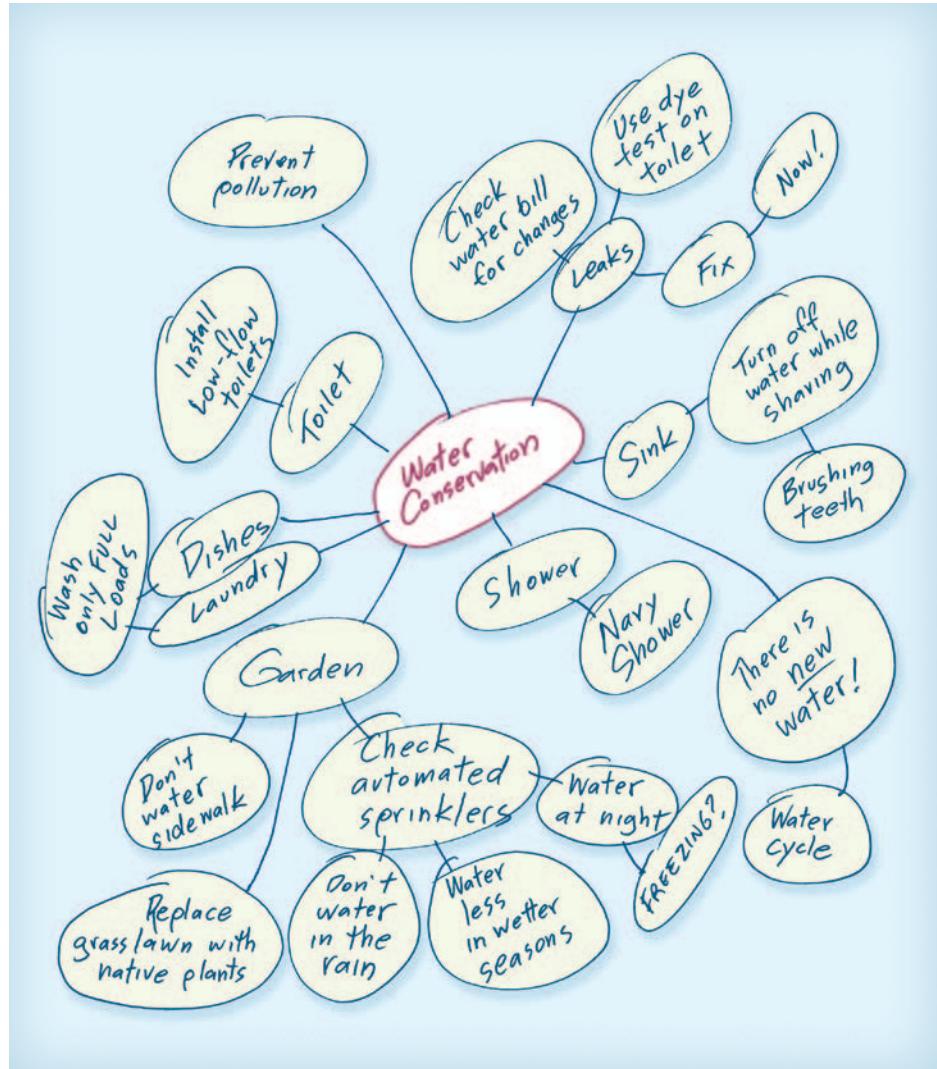 Prevent
pollution
Use dye
test on
toilet
Check
water bill
for changes
Leaks
Fix
Now!
Install
Low-flow
toilets
Toilet
Water
Conservation
Sink
Turn off
water while
shaving
Brushing
teeth
Wash
only FULL
Loads
Dishes
Laundry
Shower
Navy
Shower
There is
no new
water!
Water
cycle
Garden
Don't
water
sidewalk
Check
automated
sprinklers
Water
at night
FREEZING?
Replace
grass lawn with
native plants
Don't
water
in the
rain
Water
less
in wetter
seasons